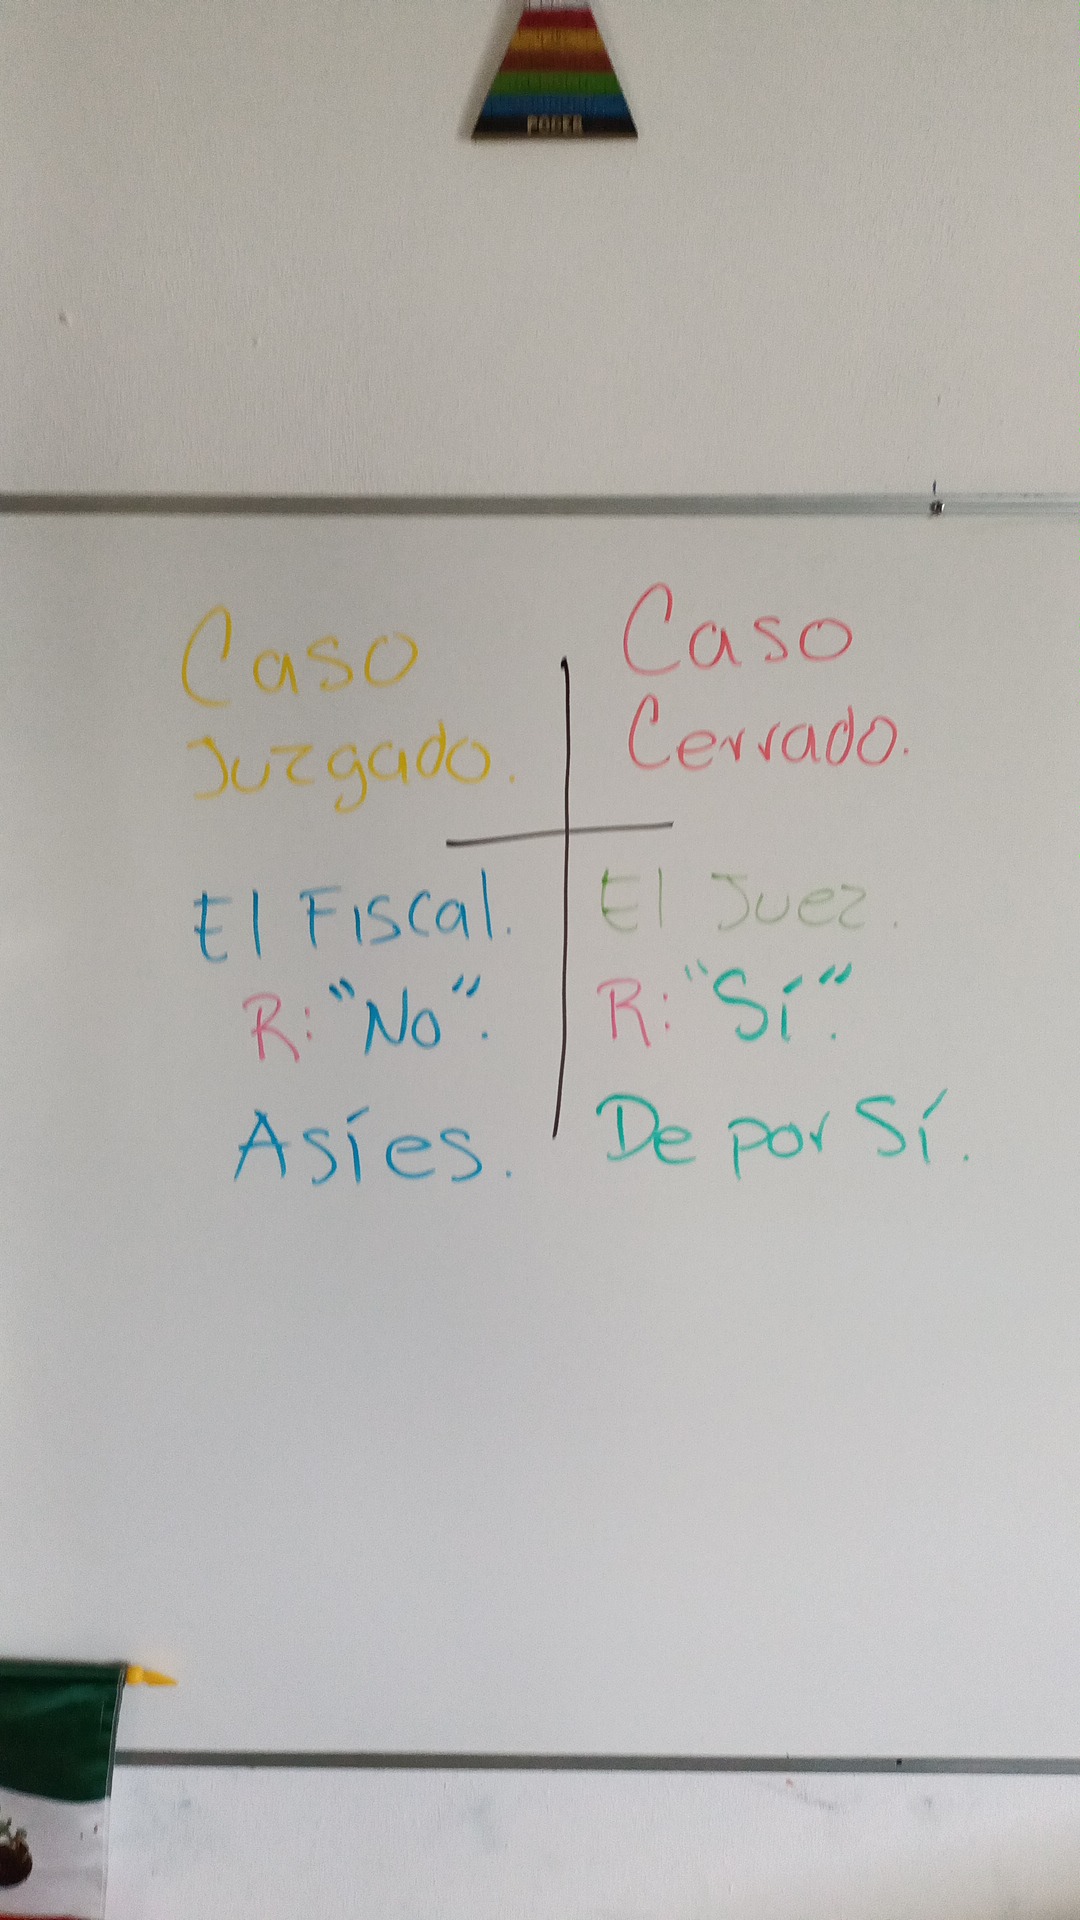 PODER
Caso
Juzgado.
El Fiscal.
R: "No".
Asíes.
Caso
Cerrado.
El Juez.
R: "Sí".
De por Sí.